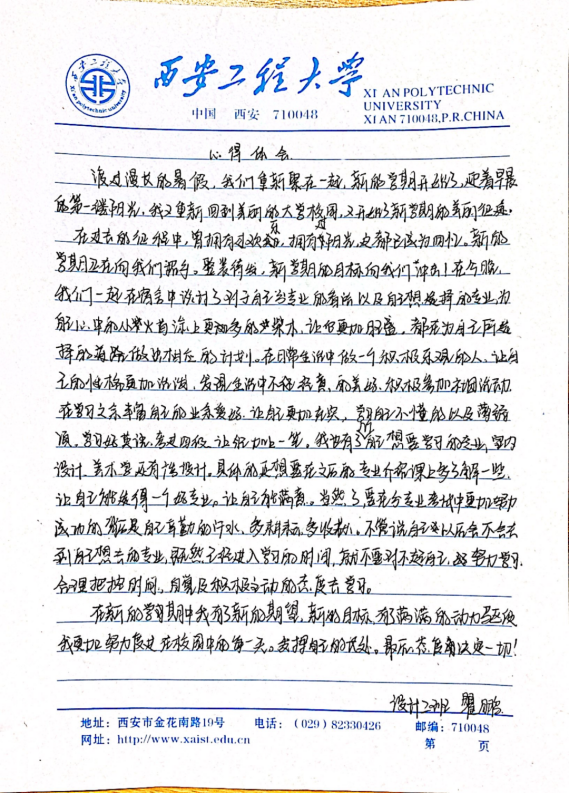 西安工程大学
XI AN POLYTECHNIC
UNIVERSITY
XI AN 710048,P.R.CHINA
中国 西安 710048
心得体会
渡过漫长的暑假，我们重新聚在一起，新的学期开始了，迎着早晨
的第一缕阳光，我又重新回到美丽的大学校园，又开始了新学期的美丽征途。
在过去的征程中，曾拥有过欢，拥有过阳光，这都已成为回忆。新的
学期正在向我们招手。整装待发，新学期的目标向我们“冲击！在今晚，
我们一起在宿舍中谈讨了对于自己当专业的看法以及自己想选择的专业，为
自己心中的小柴火有添上更多的柴木，让它更加旺盛，都在为自己所选
择的道路做出相应的计划。在日常生活中做一个积极乐观的人，让自
己的性格更加活泼，发现生活中不轻易的美好，积极参加社团活动
在学习之余丰富自己的业余爱好，让自己更加充实，学习自己不懂的以及薄弱
项，学习好英语，考过四级，让能力加上一笔。我也有了自己想要学习的专业，室内
设计，美术学还有设计。具体的更想要在之后的专业介绍课上多了解一些，
让自己能选得一个好专业。让自己能满意。当然了要在分专业考试中更加努力
成功的是自己辛勤的汗水，多耕耘，多收获。不管说自己以后会不会去
到自己想去的专业，既然已经进入学习的时间，就不要对不起自己，好好努力学习
合理把控时间，自觉及积极主动的态度去学习。
在新的学习期中我有了新的期望，新的目标，有了满满的动力驱使
我更加努力度过在校园中的每一天。发挥自己的长处。最后，态度决定一切！
设计 班 瞿鹏
地址：西安市金花南路19号 电话：（029）82330426 邮编：710048
网址：http://www.xaist.edu.cn 第 页